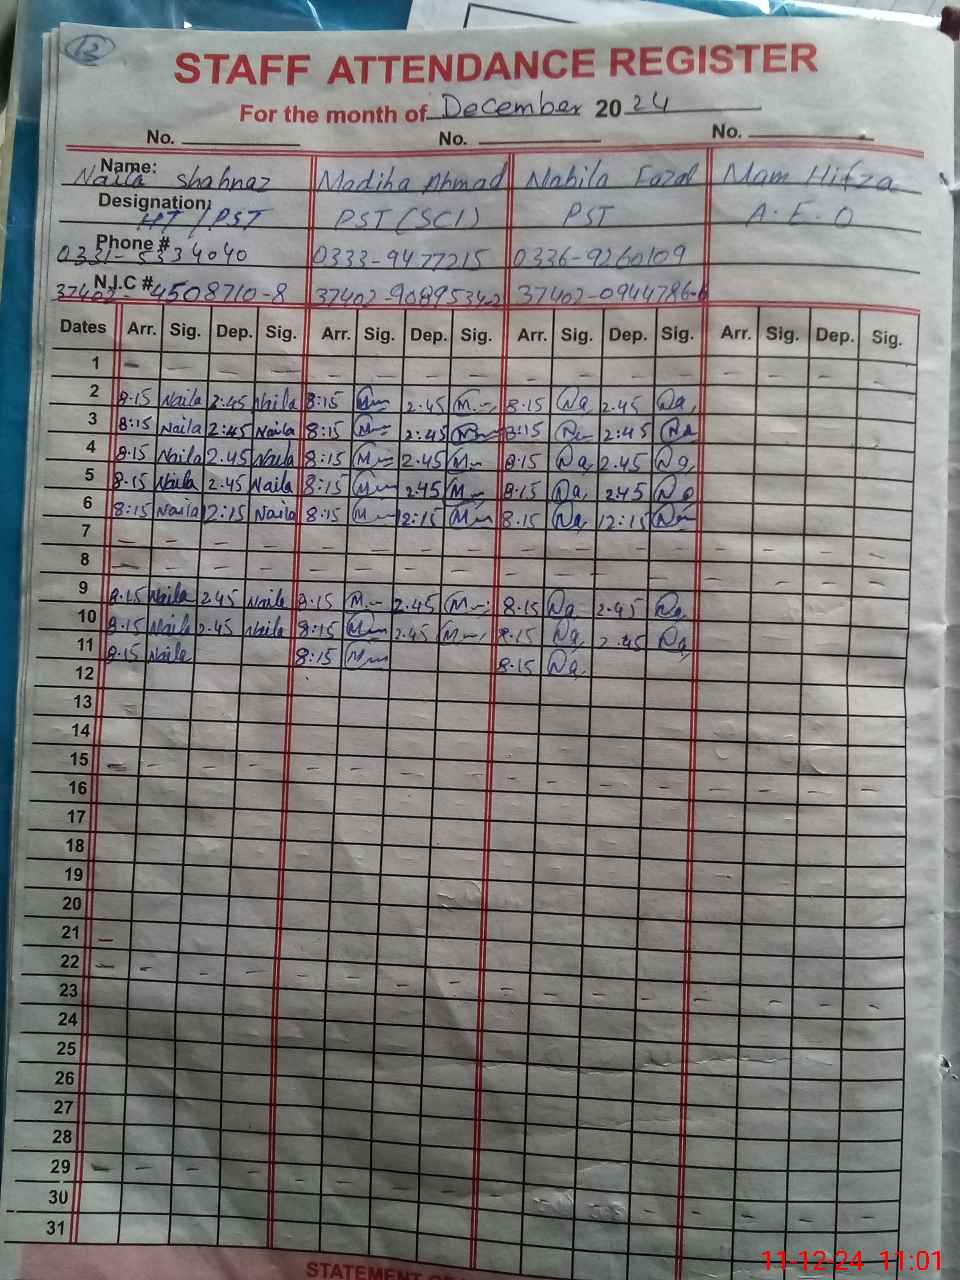 12
STAFF ATTENDANCE REGISTER
For the month of December 2024
No. No. No.
Name: Naila Shahnaz Madiha Ahmad Nabila Fazal Mam Hifza
Designation: HT / PST PST (SCI) PST A.E.O
Phone # 0331-5334040 0333-9477215 0336-9260109
N.I.C # 37402-4508710-8 37402-90895342 37402-0944786-6
Dates Arr. Sig. Dep. Sig. Arr. Sig. Dep. Sig. Arr. Sig. Dep. Sig. Arr. Sig. Dep. Sig.
1 - - - - - - - - - - - - - - - -
2 8:15 Naila 2:45 Naila 8:15 2.45 8.15 Na 2.45 Na
3 8:15 Naila 2:45 Naila 8:15 2:45 8:15 2:45
4 8.15 Naila 2.45 Naila 8:15 2.45 8.15 Na 2.45 Na
5 8.15 Naila 2.45 Naila 8:15 2.45 8.15 Na 2.45 Na
6 8:15 Naila 12:15 Naila 8:15 12:15 8.15 Na 12:15
7 - - - - - - - - - - - - - - - -
8 - - - - - - - - - - - - - - - -
9 8.15 Naila 2.45 Naila 8.15 2.45 8.15 Na 2.45 Na
10 8:15 Naila 2.45 Naila 8:15 2.45 8.15 Na 2.45 Na
11 8.15 Naila 8:15 8.15 Na
12
13
14
15 - - - - - - - - - - - - - - - -
16
17
18
19
20
21 -
22 - - - - - - - - - - - - - - - -
23
24
25
26
27
28
29 - - - - - - - - - - - - - - - -
30
31
STATEMENT
11-12-24 11:01